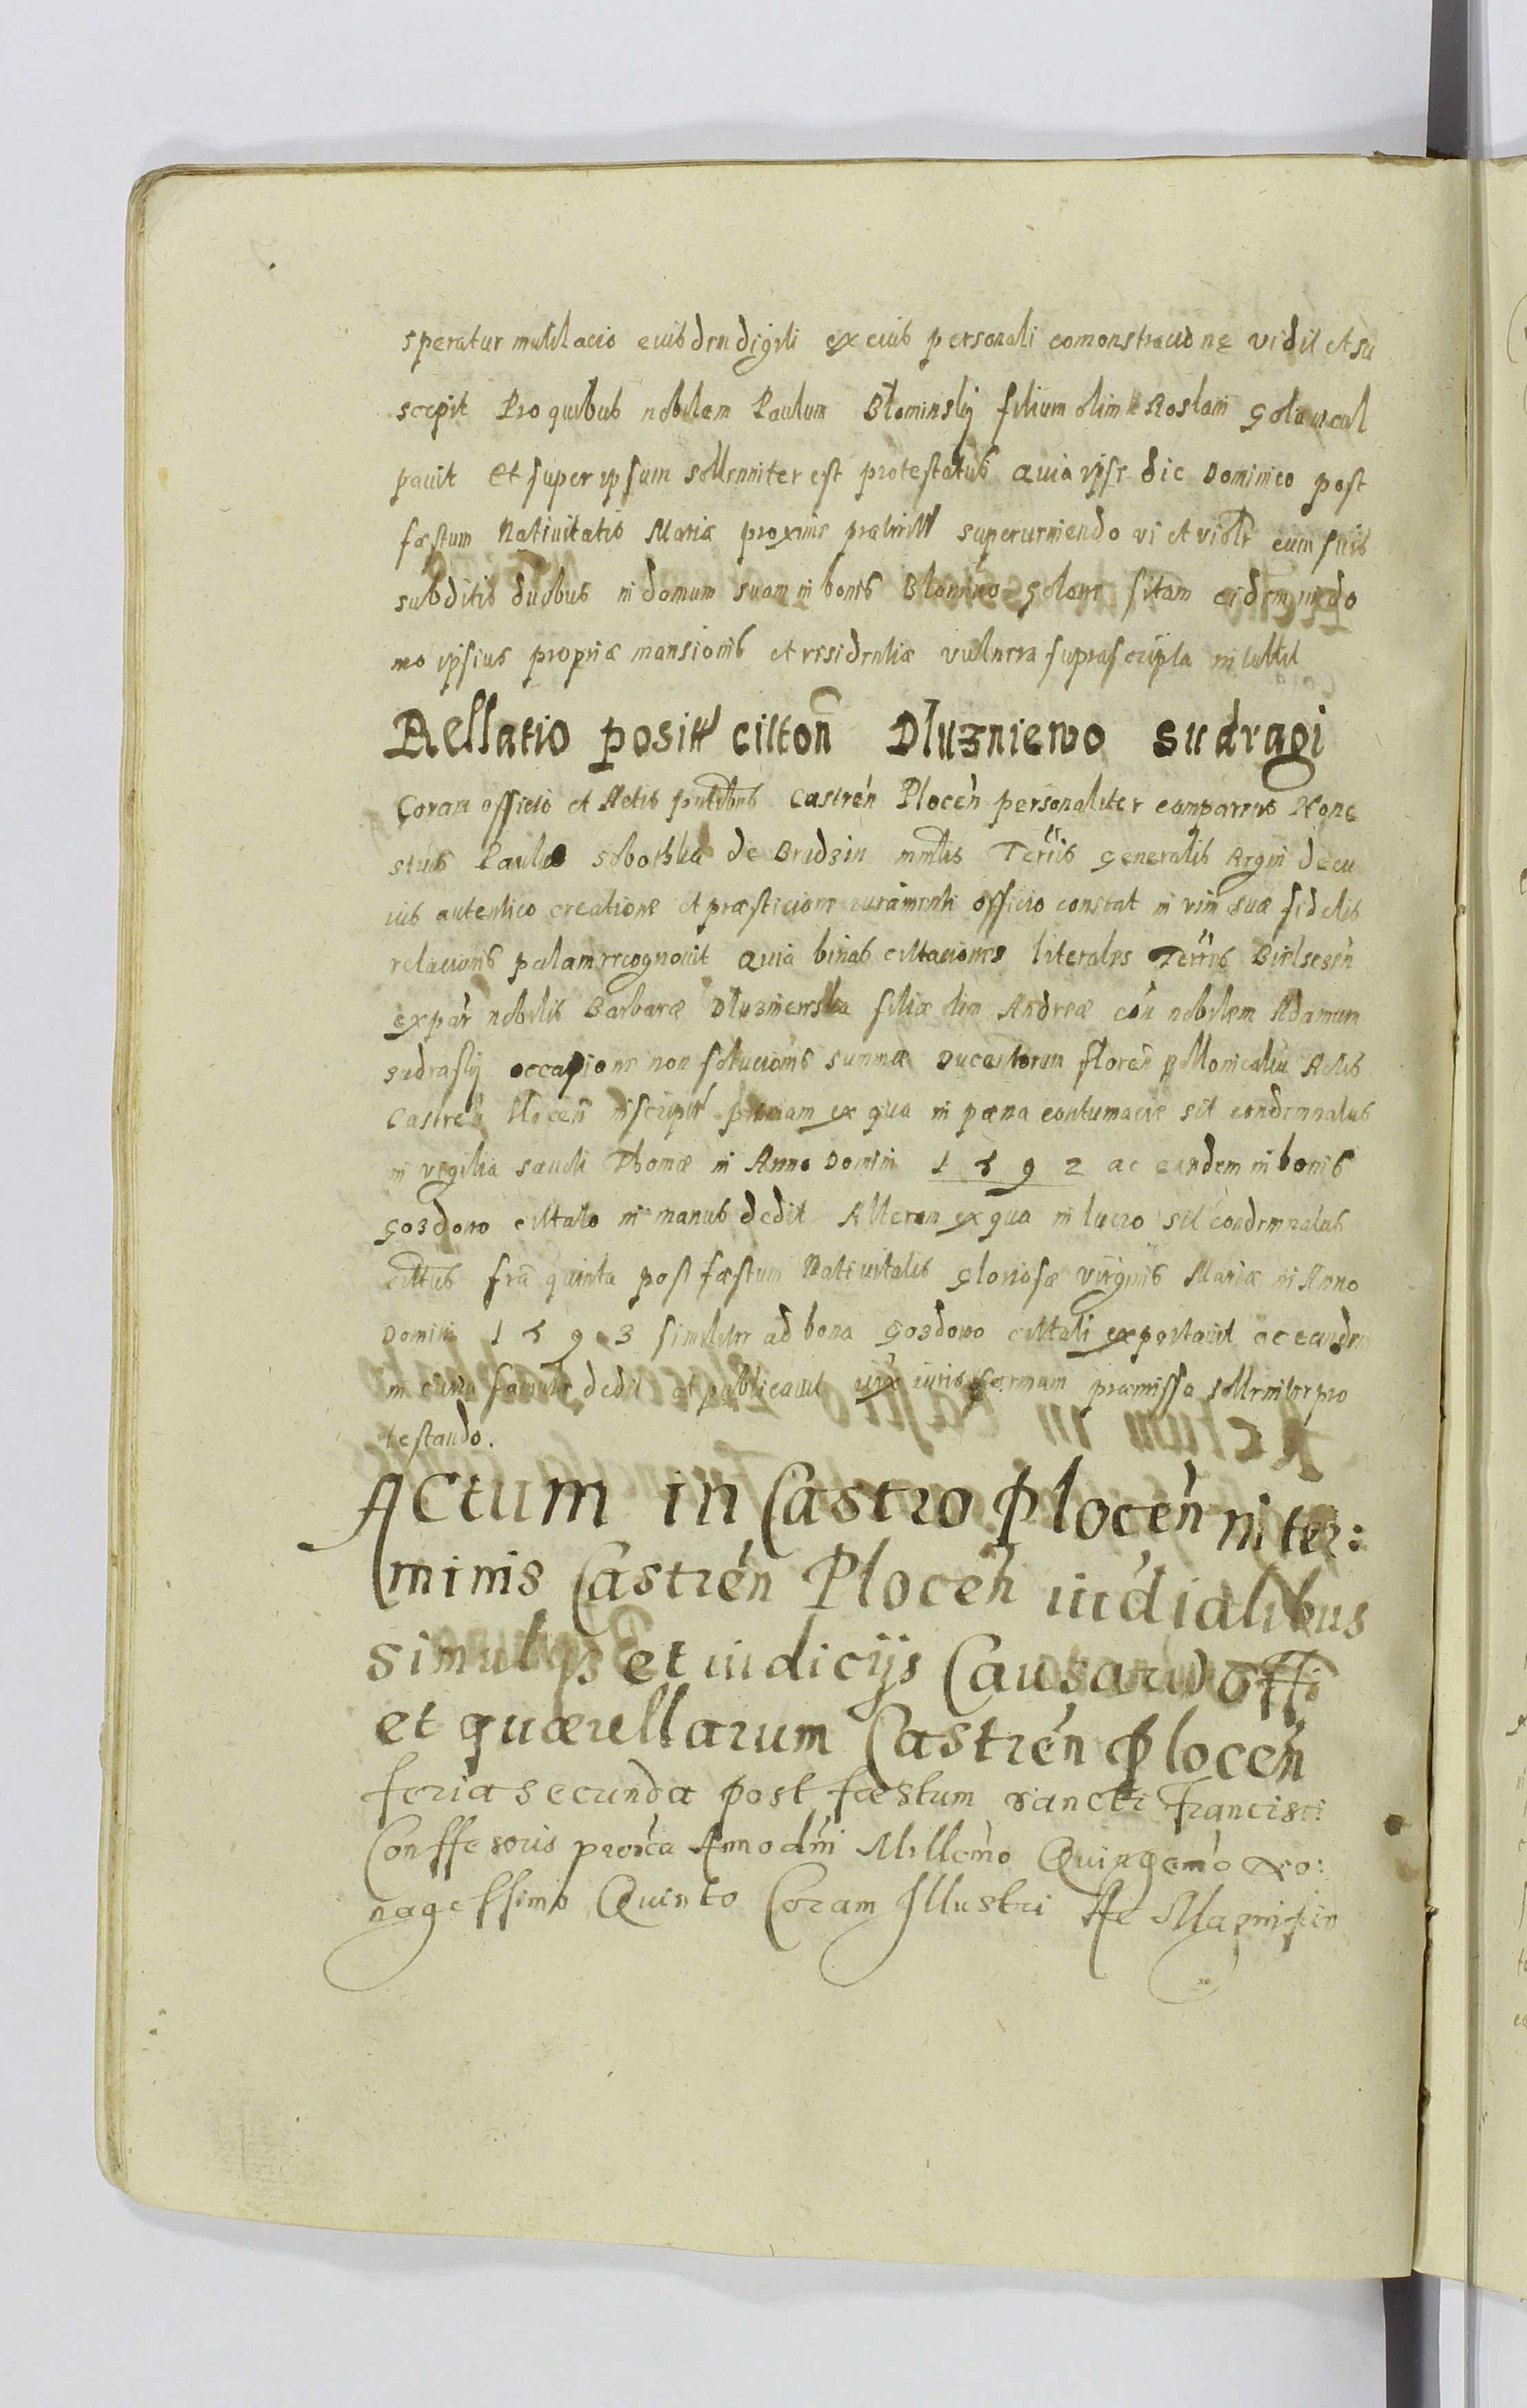 speratur mutilacio eiusdem digiti ex eius personali comonstracione vidit et su
scepit Pro quibus nobilem Paulum Błominskÿ filium olim Roslani Golawcul
pauit Et super ipsum sollenniter est protestatus Quia ipse die Dominico post
fæstum Natiuitatis Mariæ proxime præterit superueniendo vi et violr cum suis
subditis duobus in domum suam in bonis Blomino Golawe sitam eidem in do
mo ipsius propriæ mansionis et residentiæ vullnera suprascripta intullit
Rellatio positt cittoñ Dluzniewo sudragi
Coram officio et Actis pntibus Castreń Ploceń personaliter comparens Hone
stus Paulus Sobothka de Brudzin mntlis Terris generalis Regni de cu
ius autentico creatione et præsticione iuramenti officio constat in vim suæ fidelis
relacionis palam recognouit Quia binas cittaciones literales Terris Bielscen
expar nobilis Barbaræ Dluzniewska filiæ olim Andreæ con nobilem Adamum
sudraskÿ occasione non solucionis summæ Ducentorum floreń pollonicaliu Actis
Castreń Ploceń inscriptt primam ex qua in pæna contumaciæ sit condemnatus
in vigilia sancti Thomæ in Anno Domini 1592 ac eandem in bonis
Gozdowo cittato in manus dedit Alteram ex qua in lucro sit condemnatus
cittus fria quinta post fæstum Natiuitatis Gloriosæ virginis Mariæ in Anno
Domini 1593 similiter ad bona Gozdowo cittati exportauit ac eandem
in curia familiæ dedit et publicauit iux iuris formam præmissa sollemniter pro
testando.
Actum in Castro Ploceń in ter:
minis Castreń Ploceń iudialibus
simulqs et iudicijs Causarum offi
et quærellarum Castreń Ploceń
feria secunda post fæstum sancti Francisci
Conffesoris proxca Anno dmi Millemo Quingemo No:
nagessimo Quinto Coram Illustri Ac Magnifico